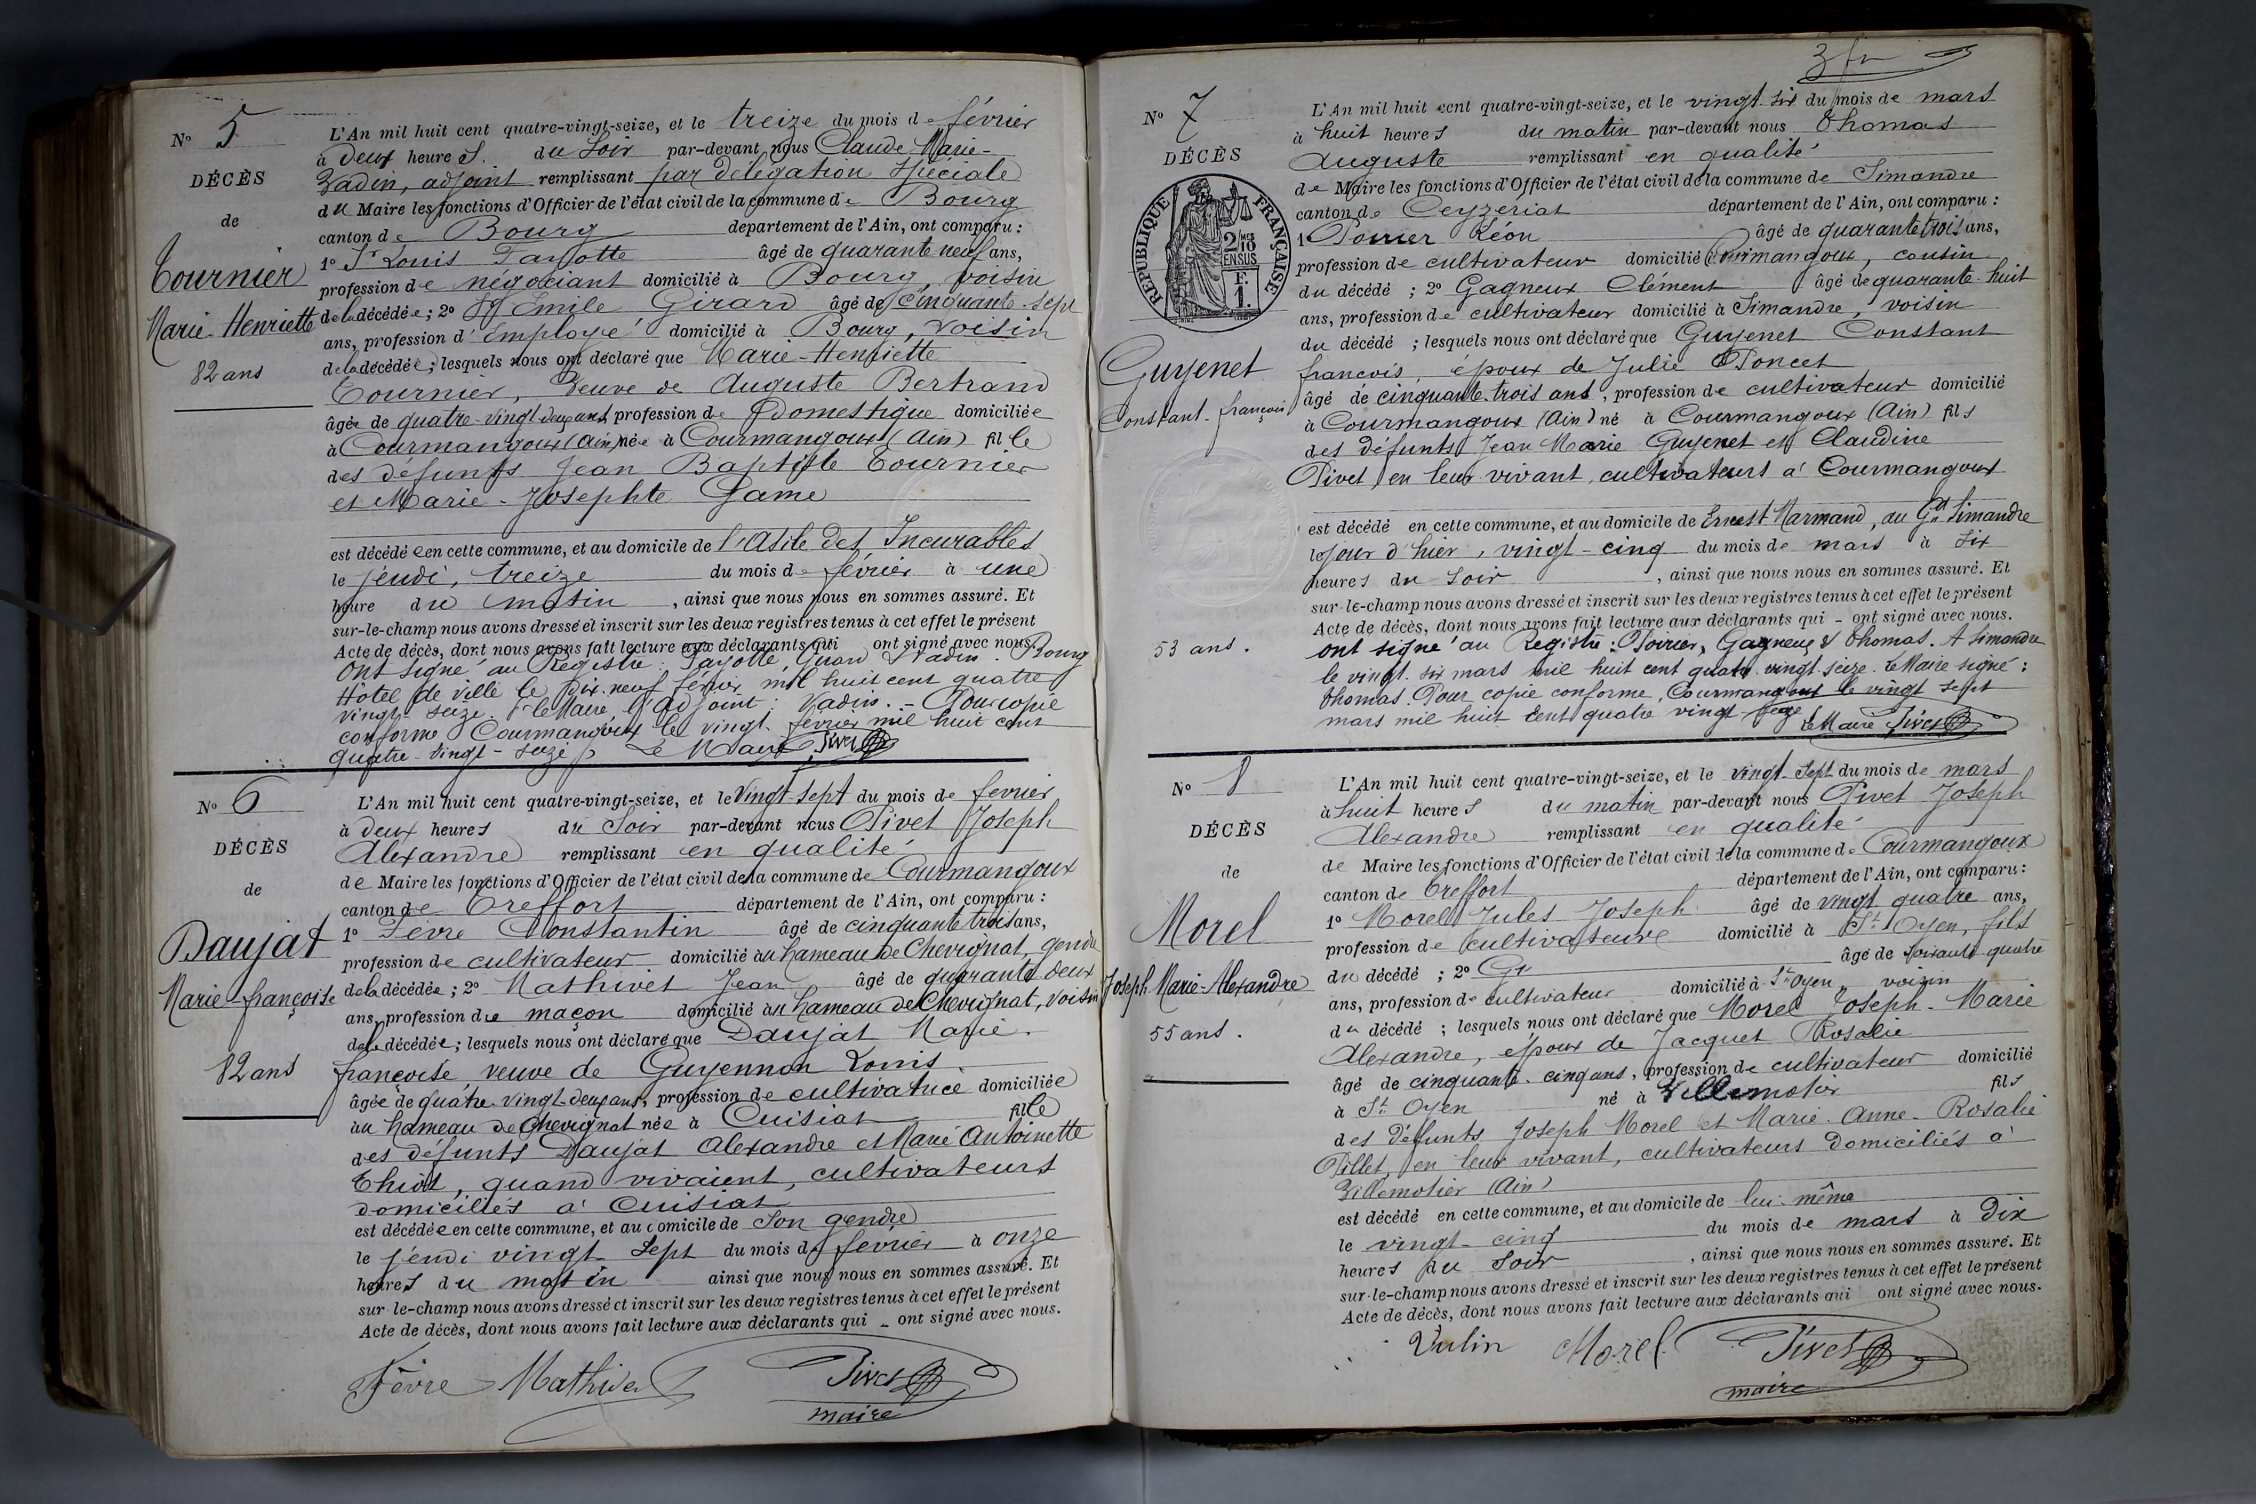 N° 5
DÉCÈS
de
Tournier
Marie-Henriette
82 ans
L'An mil huit cent quatre-vingt-seize, et le treize du mois de février
à deux heures du soir par-devant nous Claude Marie-
Vadin, adjoint remplissant par délégation spéciale
du Maire les fonctions d'Officier de l'état civil de la commune de Bourg
canton de Bourg département de l'Ain, ont comparu :
1° Sr Louis Payotte âgé de quarante neuf ans,
profession de négociant domicilié à Bourg, voisin
de la décédée ; 2° Sr Emile Girard âgé de cinquante-sept
ans, profession d'Employé domicilié à Bourg, voisin
de la décédée ; lesquels nous ont déclaré que Marie-Henriette
Tournier, Veuve de Auguste Bertrand
âgée de quatre-vingt-deux ans, profession de Domestique domiciliée
à Courmangoux (Ain) née à Courmangoux (Ain) fille
des défunts Jean Baptiste Tournier
et Marie-Josephte Game
est décédée en cette commune, et au domicile de l'Asile des Incurables
le jeudi, treize du mois de février à une
heure du matin, ainsi que nous nous en sommes assuré. Et
sur-le-champ nous avons dressé et inscrit sur les deux registres tenus à cet effet le présent
Acte de décès, dont nous avons fait lecture aux déclarants qui ont signé avec nous.
Ont signé au Registre : Payotte, Girard Vadin. Bourg
Hôtel de ville le dix-neuf février mil huit cent quatre
vingt-seize. le Maire adjoint : Vadin. - Pour copie
conforme Courmangoux le vingt février mil huit cent
quatre-vingt-seize Le Maire Pivet
N° 6
DÉCÈS
de
Daujat
Marie-françoise
82 ans
L'An mil huit cent quatre-vingt-seize, et le vingt-sept du mois de fevrier
à deux heures du soir par-devant nous Pivet Joseph
Alexandre remplissant en qualité
de Maire les fonctions d'Officier de l'état civil de la commune de Courmangoux
canton de Treffort département de l'Ain, ont comparu :
1° Fèvre Constantin âgé de cinquante trois ans,
profession de cultivateur domicilié au hameau de Chevignat, gendre
de la décédée ; 2° Mathivet Jean âgé de quarante deux
ans, profession de maçon domicilié au hameau de Chevignat, voisin
de la décédée ; lesquels nous ont déclaré que Daujat Marie-
françoise veuve de Guyennon Louis
âgée de quatre-vingt-deux ans, profession de cultivatrice domiciliée
au hameau de Chevignat née à Cuisiat fille
des défunts Daujat Alexandre et Marie Antoinette
Thiot, quand vivaient, cultivateurs
domiciliés à Cuisiat
est décédée en cette commune, et au domicile de son gendre
le jeudi vingt sept du mois de fevrier à onze
heures du matin ainsi que nous nous en sommes assuré. Et
sur-le-champ nous avons dressé et inscrit sur les deux registres tenus à cet effet le présent
Acte de décès, dont nous avons fait lecture aux déclarants qui ont signé avec nous.
Fèvre Mathivet Pivet
maire
N° 7
DÉCÈS
RÉPUBLIQUE FRANÇAISE
2/10 EN SUS
F. 1.
Guyenet
Constant-françois
53 ans.
L'An mil huit cent quatre-vingt-seize, et le vingt-six du mois de mars
à huit heures du matin par-devant nous Thomas
Auguste remplissant en qualité
de Maire les fonctions d'Officier de l'état civil de la commune de Simandre
canton de Ceyzeriat département de l'Ain, ont comparu :
1° Poirier Léon âgé de quarante trois ans,
profession de cultivateur domicilié Courmangoux, cousin
du décédé ; 2° Gagneux Clément âgé de quarante-huit
ans, profession de cultivateur domicilié à Simandre, voisin
du décédé ; lesquels nous ont déclaré que Guyenet Constant
françois, époux de Julie Poncet
âgé de cinquante-trois ans, profession de cultivateur domicilié
à Courmangoux (Ain) né à Courmangoux (Ain) fils
des défunts Jean Marie Guyenet et Claudine
Pivet en leur vivant, cultivateurs à Courmangoux
est décédé en cette commune, et au domicile de Ernest Marmand, au Gd Simandre
le jour d'hier, vingt-cinq du mois de mars à six
heures du soir, ainsi que nous nous en sommes assuré. Et
sur-le-champ nous avons dressé et inscrit sur les deux registres tenus à cet effet le présent
Acte de décès, dont nous avons fait lecture aux déclarants qui - ont signé avec nous.
ont signé au Registre : Poirier, Gagneux & Thomas. A Simandre
le vingt-six mars mil huit cent quatre vingt-seize. Le Maire signé :
Thomas. Pour copie conforme, Courmangoux le vingt sept
mars mil huit cent quatre vingt seize Le Maire Pivet
N° 8
DÉCÈS
de
Morel
Joseph Marie-Alexandre
55 ans.
L'An mil huit cent quatre-vingt-seize, et le vingt-sept du mois de mars
à huit heures du matin par-devant nous Pivet Joseph
Alexandre remplissant en qualité
de Maire les fonctions d'Officier de l'état civil de la commune de Courmangoux
canton de Treffort département de l'Ain, ont comparu :
1° Morel Jules Joseph âgé de vingt quatre ans,
profession de cultivateur domicilié à St Oyen, fils
du décédé ; 2° âgé de soixante quatre
ans, profession de cultivateur domicilié à St Oyen, voisin
du décédé ; lesquels nous ont déclaré que Morel Joseph-Marie
Alexandre, époux de Jacquet Rosalie
âgé de cinquante-cinq ans, profession de cultivateur domicilié
à St Oyen né à Villemotier fils
des défunts Joseph Morel et Marie-Anne-Rosalie
Pillet, en leur vivant, cultivateurs domiciliés à
Villemotier (Ain)
est décédé en cette commune, et au domicile de lui-même
le vingt-cinq du mois de mars à dix
heures du soir, ainsi que nous nous en sommes assuré. Et
sur-le-champ nous avons dressé et inscrit sur les deux registres tenus à cet effet le présent
Acte de décès, dont nous avons fait lecture aux déclarants qui ont signé avec nous.
Vulin Morel Pivet
maire